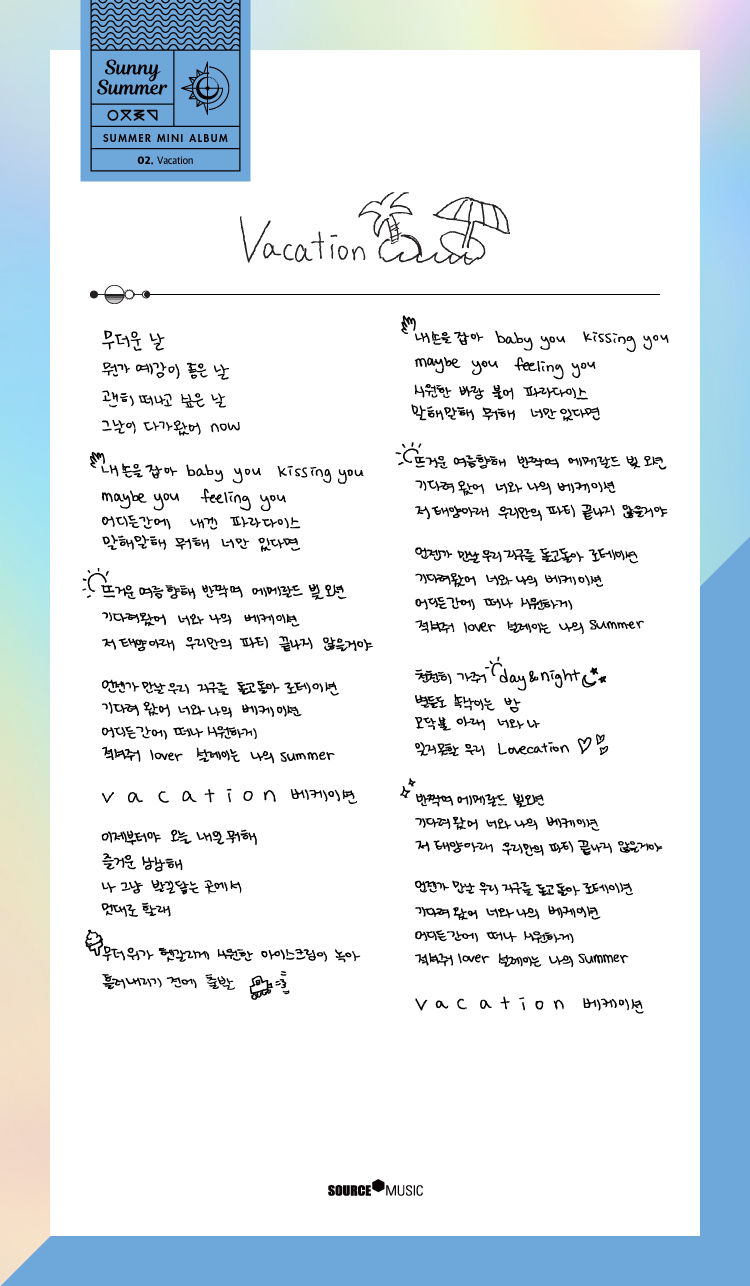 Sunny
Summer
SUMMER MINI ALBUM
02. Vacation
Vacation
무더운 날
뭔가 예감이 좋은 날
괜히 떠나고 싶은 날
그날이 다가왔어 now
내 손을 잡아 baby you kissing you
maybe you feeling you
어디든간에 내겐 파라다이스
말해말해 뭐해 너만 있다면
뜨거운 여름향해 반짝여 에메랄드 빛 외면
기다려왔어 너와 나의 베케이션
저 태양아래 우리만의 파티 끝나지 않을거야
언젠가 만날 우리 지구를 돌고돌아 로테이션
기다려 왔어 너와 나의 베케이션
어디든간에 떠나 시원하게
적셔줘 lover 설레이는 나의 summer
vacation 베케이션
이제부터야 오늘 내일 뭐해
즐거운 상상해
나 그냥 발길닿는 곳에서
멋대로 할래
무더위가 헷갈리게 시원한 아이스크림이 녹아
흘러내리기 전에 출발
내 손을 잡아 baby you kissing you
maybe you feeling you
시원한 바람 불어 파라다이스
말해말해 뭐해 너만 있다면
뜨거운 여름향해 반짝여 에메랄드 빛 외면
기다려 왔어 너와 나의 베케이션
저 태양아래 우리만의 파티 끝나지 않을거야
언젠가 만날 우리 지구를 돌고돌아 로테이션
기다려왔어 너와 나의 베케이션
어디든간에 떠나 시원하게
적셔줘 lover 설레이는 나의 summer
천천히 가줘 day&night
별들도 속삭이는 밤
모닥불 아래 너와 나
잊지못할 우리 Lovecation
반짝여 에메랄드 빛외면
기다려 왔어 너와 나의 베케이션
저 태양아래 우리만의 파티 끝나지 않을거야
언젠가 만날 우리 지구를 돌고돌아 로테이션
기다려 왔어 너와 나의 베케이션
어디든간에 떠나 시원하게
적셔줘 lover 설레이는 나의 summer
vacation 베케이션
SOURCE MUSIC